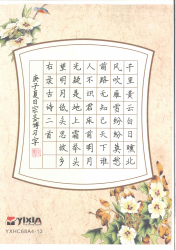 千里黄云白日曛北
风吹雁雪纷纷莫愁
前路无知己天下谁
人不识君床前明月
光疑是地上霜举头
望明月低头思故乡
右录古诗二首
庚子夏日习字
YIXIA
YXHC68A4-12